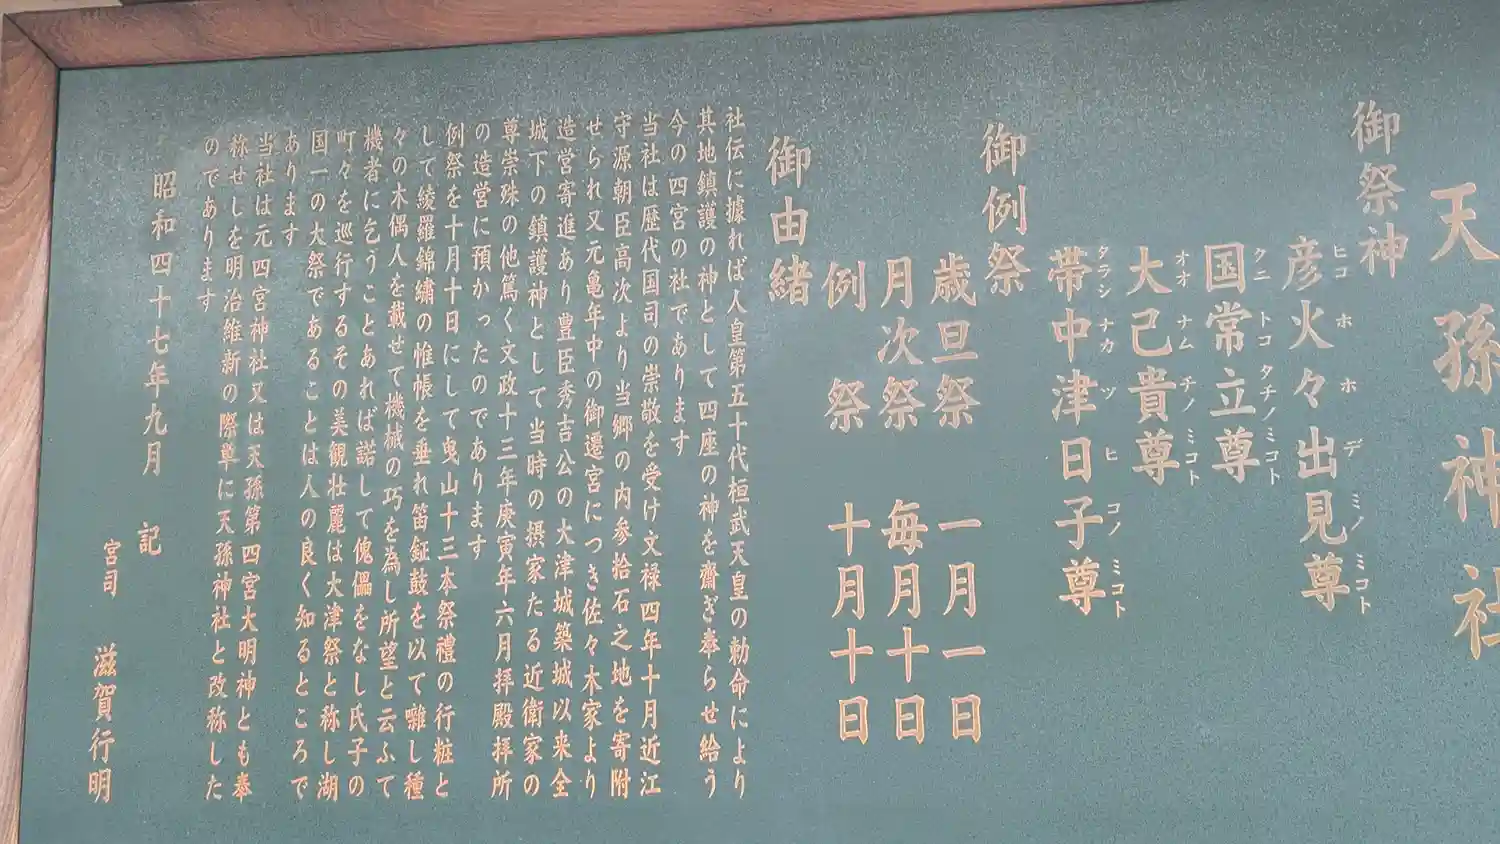 天孫神社
御祭神
彦火々出見尊
ヒコホホデミノミコト
国常立尊
クニトコタチノミコト
大己貴尊
オオナムチノミコト
帯中津日子尊
タラシナカツヒコノミコト
御例祭
歳旦祭 一月一日
月次祭 毎月十日
例祭 十月十日
御由緒
社伝に據れば人皇第五十代桓武天皇の勅命により
其地鎮護の神として四座の神を齋ぎ奉らせ給う
今の四宮の社であります
当社は歴代国司の崇敬を受け文禄四年十月近江
守源朝臣高次より当郷の内参拾石之地を寄附
せられ又元亀年中の御遷宮につき佐々木家より
造営寄進あり豊臣秀吉公の大津城築城以来全
城下の鎮護神として当時の摂家たる近衛家の
尊崇殊の他篤く文政十三年庚寅年六月拝殿拝所
の造営に預かったのであります
例祭を十月十日にして曳山十三本祭禮の行粧と
して綾羅錦繡の惟帳を垂れ笛鉦鼓を以て囃し種
々の木偶人を載せて機械の巧を為し所望と云ふて
機者に乞うことあれば諾して傀儡をなし氏子の
町々を巡行するその美観壮麗は大津祭と称し湖
国一の大祭であることは人の良く知るところで
あります
当社は元四宮神社又は天孫第四宮大明神とも奉
称せしを明治維新の際単に天孫神社と改称した
のであります
昭和四十七年九月 記
宮司 滋賀行明